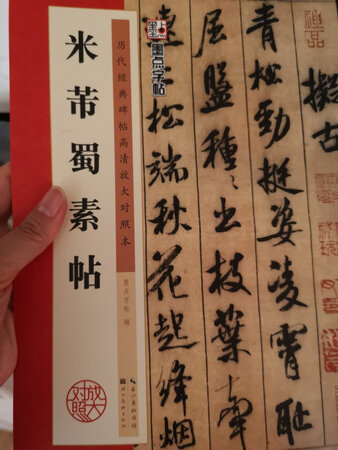 米芾蜀素帖
历代经典碑帖高清放大对照本
墨点字帖 编
长江出版传媒
湖北美术出版社
放大
对照
墨点字帖
擬古
青松勁挺姿凌霄耻
屈盤種々出枝葉牽
連上松端秋花起絳烟